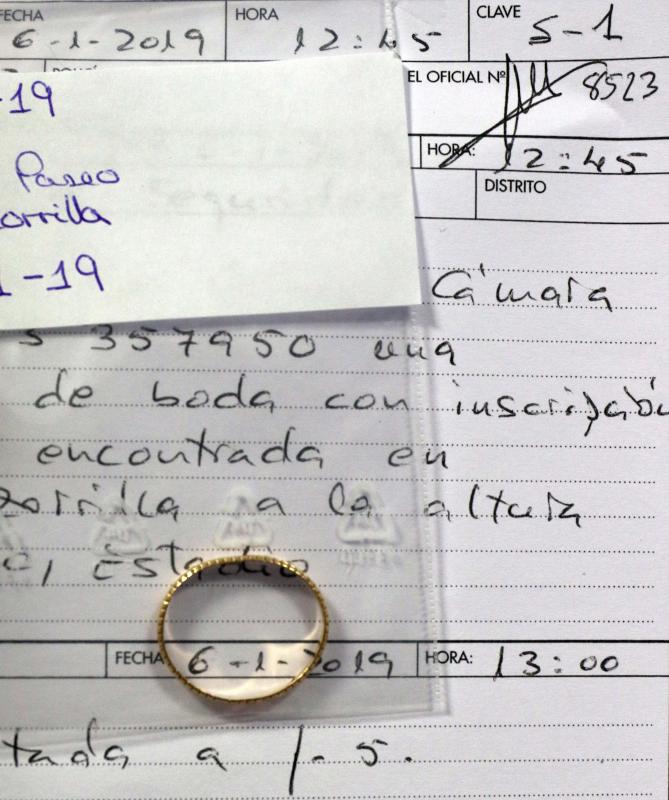 FECHA HORA CLAVE
6-1-2019 12:45 S-1
EL OFICIAL Nº 8523
-19
HORA: 12:45
Paseo
DISTRITO
orrilla
1-19
Cámara
s 357950 una
de boda con
encontrada en
Zorrilla a la altura
Estadio
FECHA 6-1-2019 HORA: 13:00
tada a 1-5.